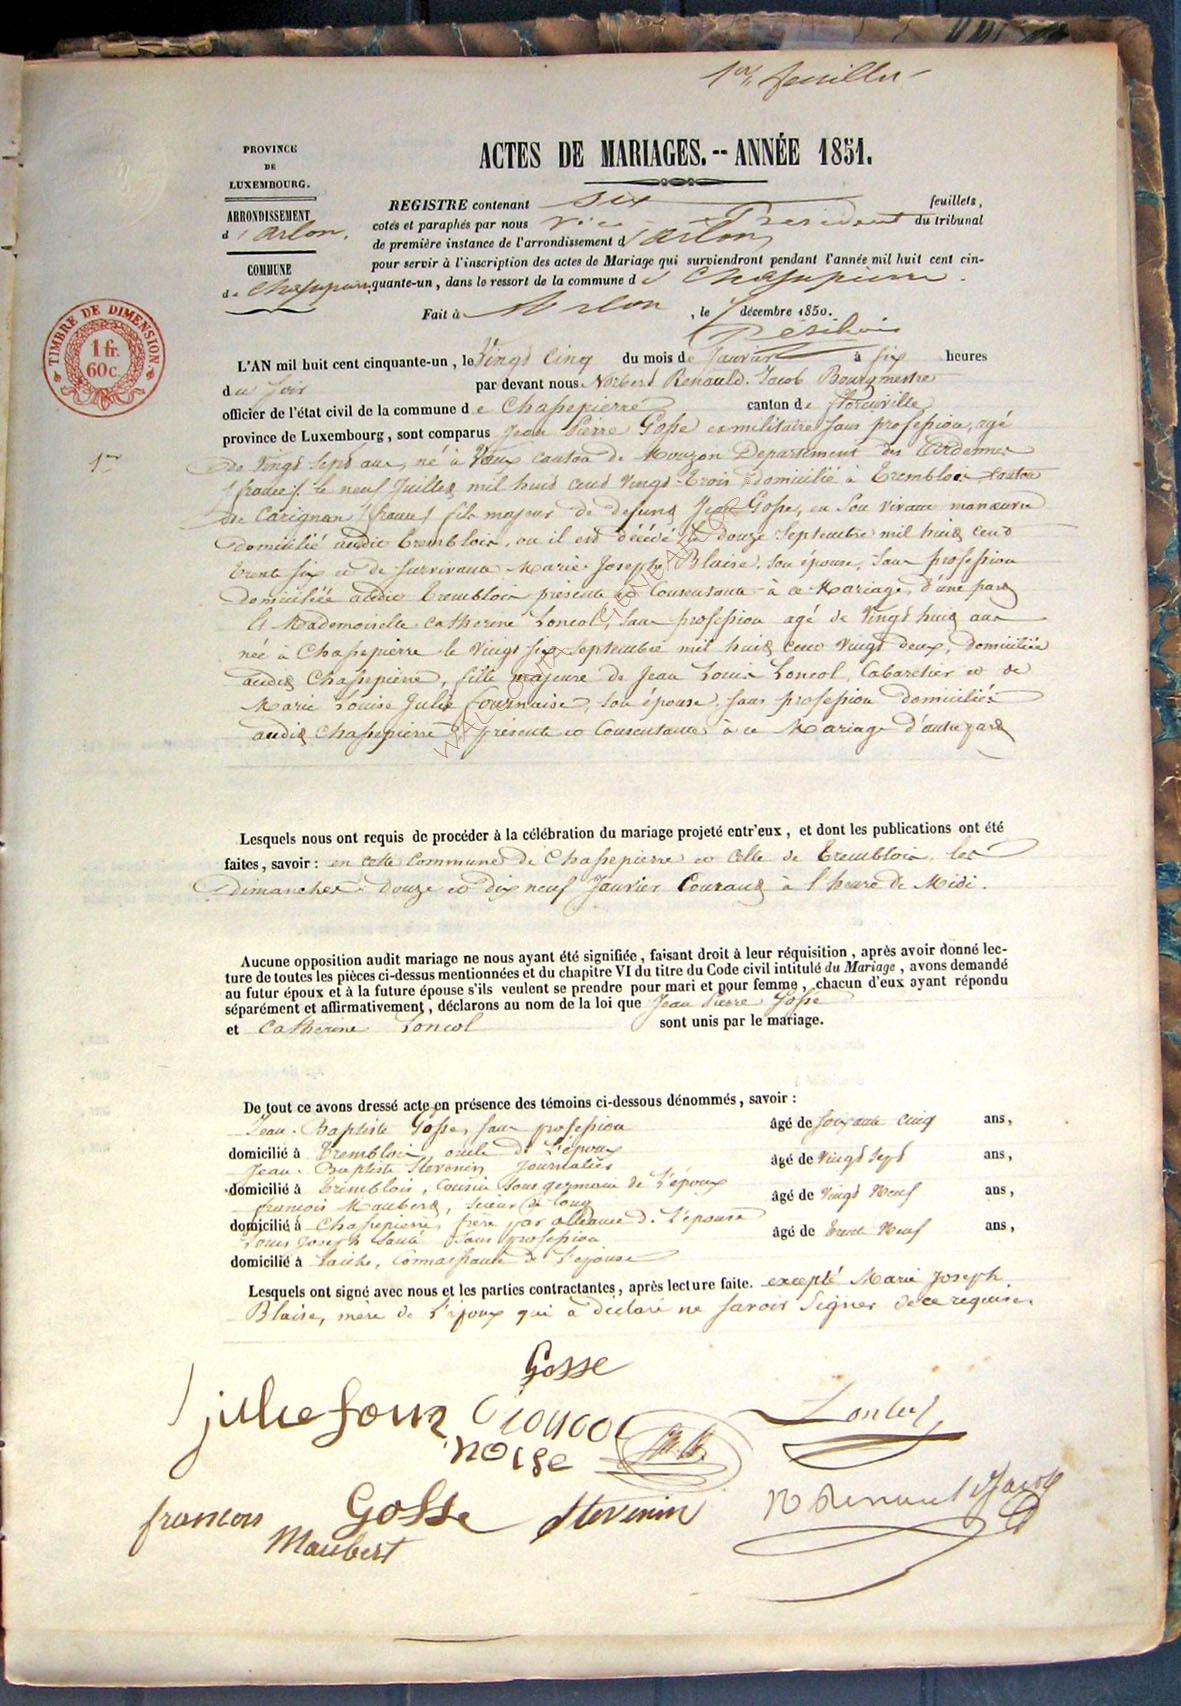 1er feuillet
PROVINCE
DE
LUXEMBOURG.
ARRONDISSEMENT
d'Arlon.
COMMUNE
de Chassepierre
ACTES DE MARIAGES. -- ANNÉE 1851.
REGISTRE contenant six feuillets,
cotés et paraphés par nous Vice Président du tribunal
de première instance de l'arrondissement d'Arlon
pour servir à l'inscription des actes de Mariage qui surviendront pendant l'année mil huit cent cin-
quante-un, dans le ressort de la commune de Chassepierre.
Fait à Arlon, le décembre 1850.
TIMBRE DE DIMENSION
1 fr.
60c.
L'AN mil huit cent cinquante-un, le Vingt Cinq du mois de Janvier à six heures
du soir par devant nous Norbert Renauld. Jacob Bourgmestre
officier de l'état civil de la commune de Chassepierre canton de Florenville
province de Luxembourg, sont comparus Jean Pierre Gosse exmilitaire sans profession, agé
1er
de Vingt sept ans, né à Vaux canton de Mouzon Departement des Ardennes
(france). le neuf Juillet mil huit cent vingt-trois domicilié à Tremblois canton
de Carignan (france) fils majeur de defunt Jean Gosse, en son vivant manœuvre
domicilié audit Tremblois, où il est décédé le douze Septembre mil huit cent
trente six et de survivante Marie Joseph Blaise, son épouse, sans profession
domiciliée audit Tremblois présente et Consentante à ce Mariage, d'une part
Et Mademoiselle Catherine Loncol, sans profession agé de Vingt huit ans
née à Chassepierre le Vingt six Septembre mil huit cent vingt deux, domiciliée
audit Chassepierre, fille majeure de Jean Louis Loncol, Cabaretier et de
Marie Louise Julie Fournaise, son épouse, sans profession domiciliés
audit Chassepierre présente et Consentante à ce Mariage d'autre part
Lesquels nous ont requis de procéder à la célébration du mariage projeté entr'eux, et dont les publications ont été
faites, savoir : en cette Commune de Chassepierre et Celle de Tremblois. les
dimanches douze et dix neuf Janvier Courant à l'heure de Midi.
Aucune opposition audit mariage ne nous ayant été signifiée, faisant droit à leur réquisition, après avoir donné lec-
ture de toutes les pièces ci-dessus mentionnées et du chapitre VI du titre du Code civil intitulé du Mariage, avons demandé
au futur époux et à la future épouse s'ils veulent se prendre pour mari et pour femme, chacun d'eux ayant répondu
séparément et affirmativement, déclarons au nom de la loi que Jean Pierre Gosse
et Catherine Loncol sont unis par le mariage.
De tout ce avons dressé acte en présence des témoins ci-dessous dénommés, savoir :
Jean-Baptiste Gosse, sans profession âgé de soixante cinq ans,
domicilié à Tremblois, oncle de l'époux
Jean-Baptiste Stevenin Journalier âgé de vingt sept ans,
domicilié à Tremblois, Cousin sous germain de l'époux
françois Maubert, scieur de long âgé de vingt Neuf ans,
domicilié à Chassepierre, frère par alliance de l'épouse
Louis Joseph sans profession âgé de trente Neuf ans,
domicilié à Laiche, Connaissance de l'épouse
Lesquels ont signé avec nous et les parties contractantes, après lecture faite. excepté Marie Joseph
Blaise, mère de l'époux qui a déclaré ne savoir signer de ce requise.
Gosse
julie four
noise
C loncol
francois
Maubert
Gosse
Stevenin
N Renauld Jacob
WWW.LUXROOTS.GENEALOGIE